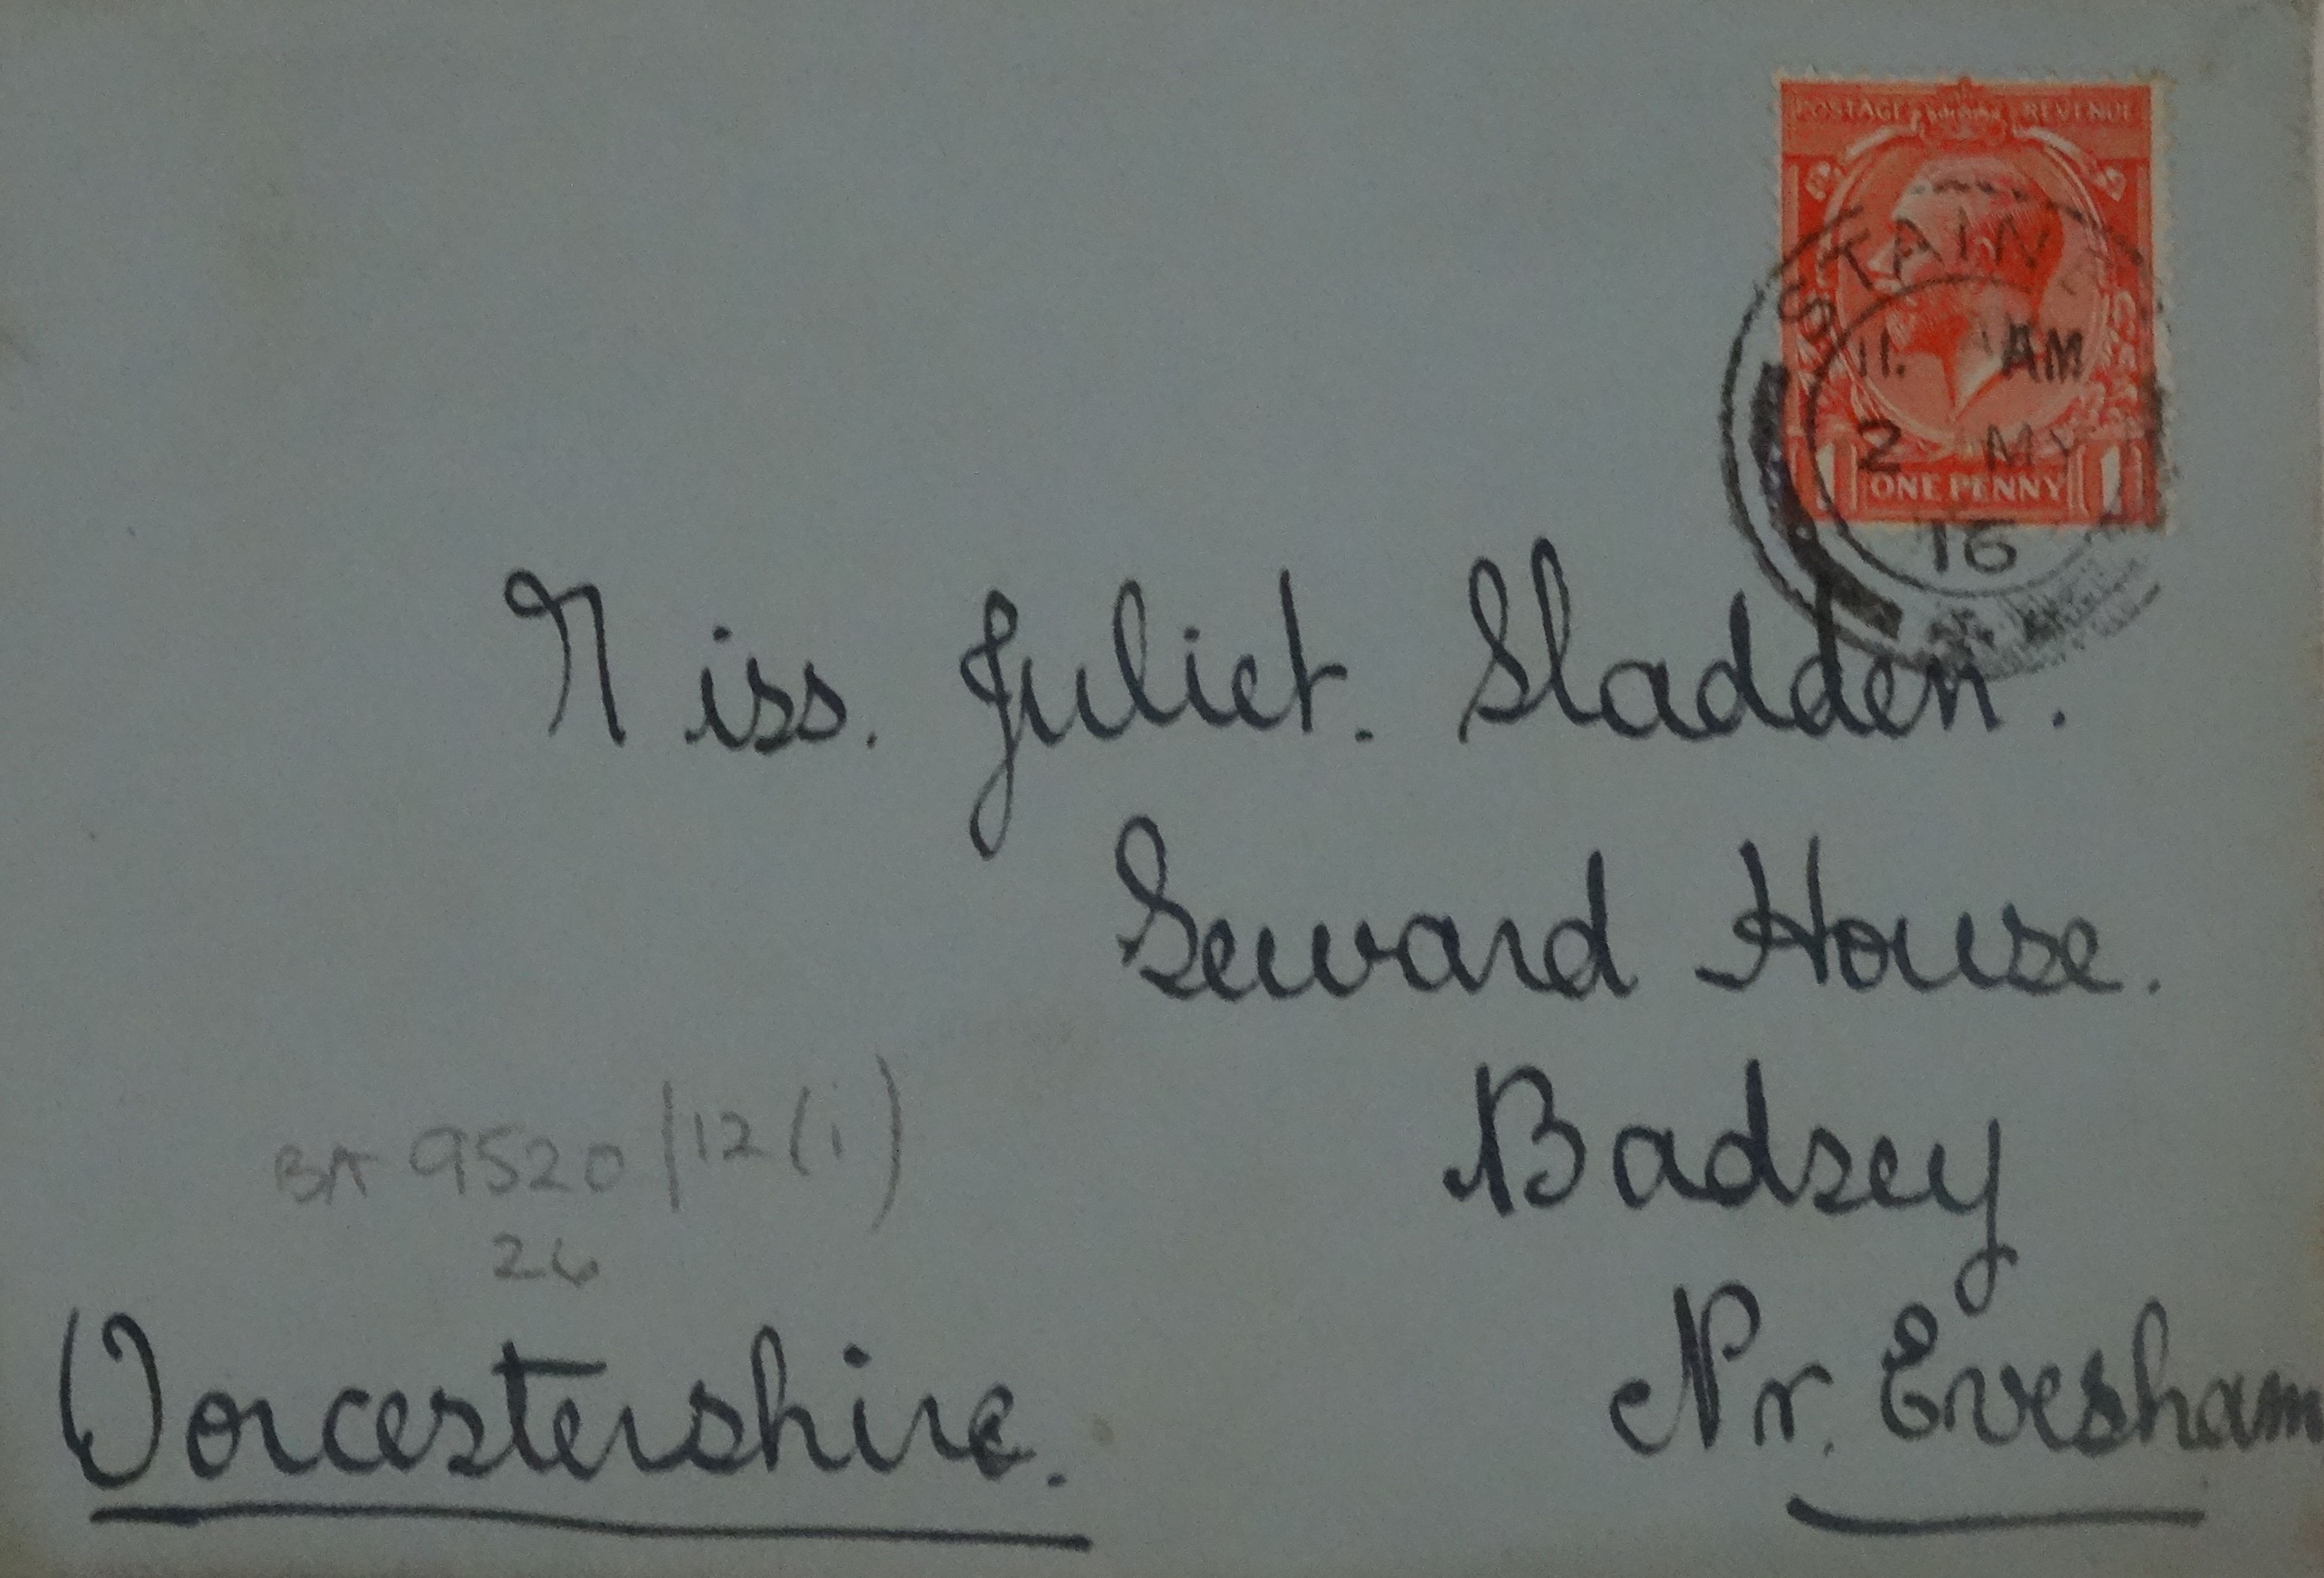 POSTAGE REVENUE
STAINES
11. AM
2 MY
ONE PENNY
16
Miss. Juliet. Sladden.
Seward House.
Badsey
Nr. Evesham
Worcestershire.
BA 9520/12(i)
26